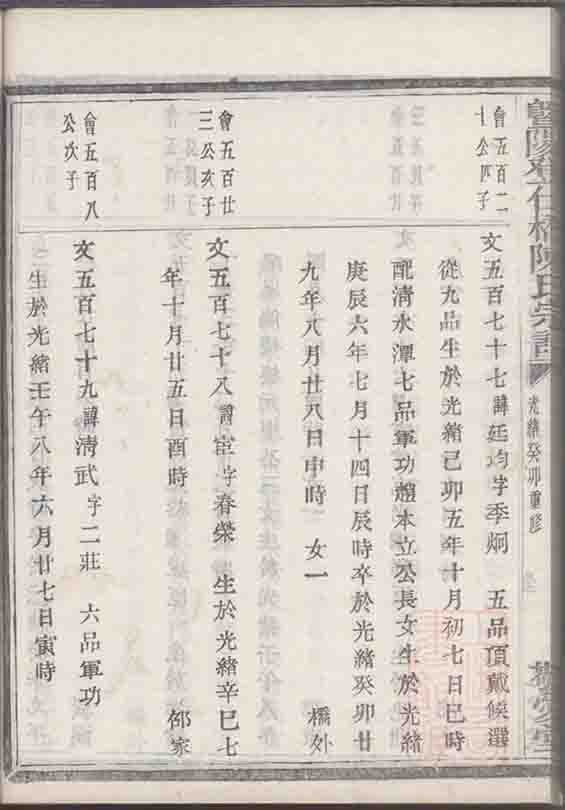 暨陽孝仁橋陳氏宗譜
光緒癸卯重修
會五百二
十公四子
文五百七十七諱廷均字季炯 五品頂戴候選
從九品生於光緒己卯五年十月初七日巳時
配清水潭七品軍功趙本立公長女生於光緒
庚辰六年七月十四日辰時卒於光緒癸卯廿
九年八月廿八日申時 女一 橋外
會五百廿
三公次子
文五百七十八諱宦字春榮 生於光緒辛巳七
年十月廿五日酉時 邨家
會五百八
公次子
文五百七十九諱清武字二莊 六品軍功
生於光緒壬午八年六月廿七日寅時